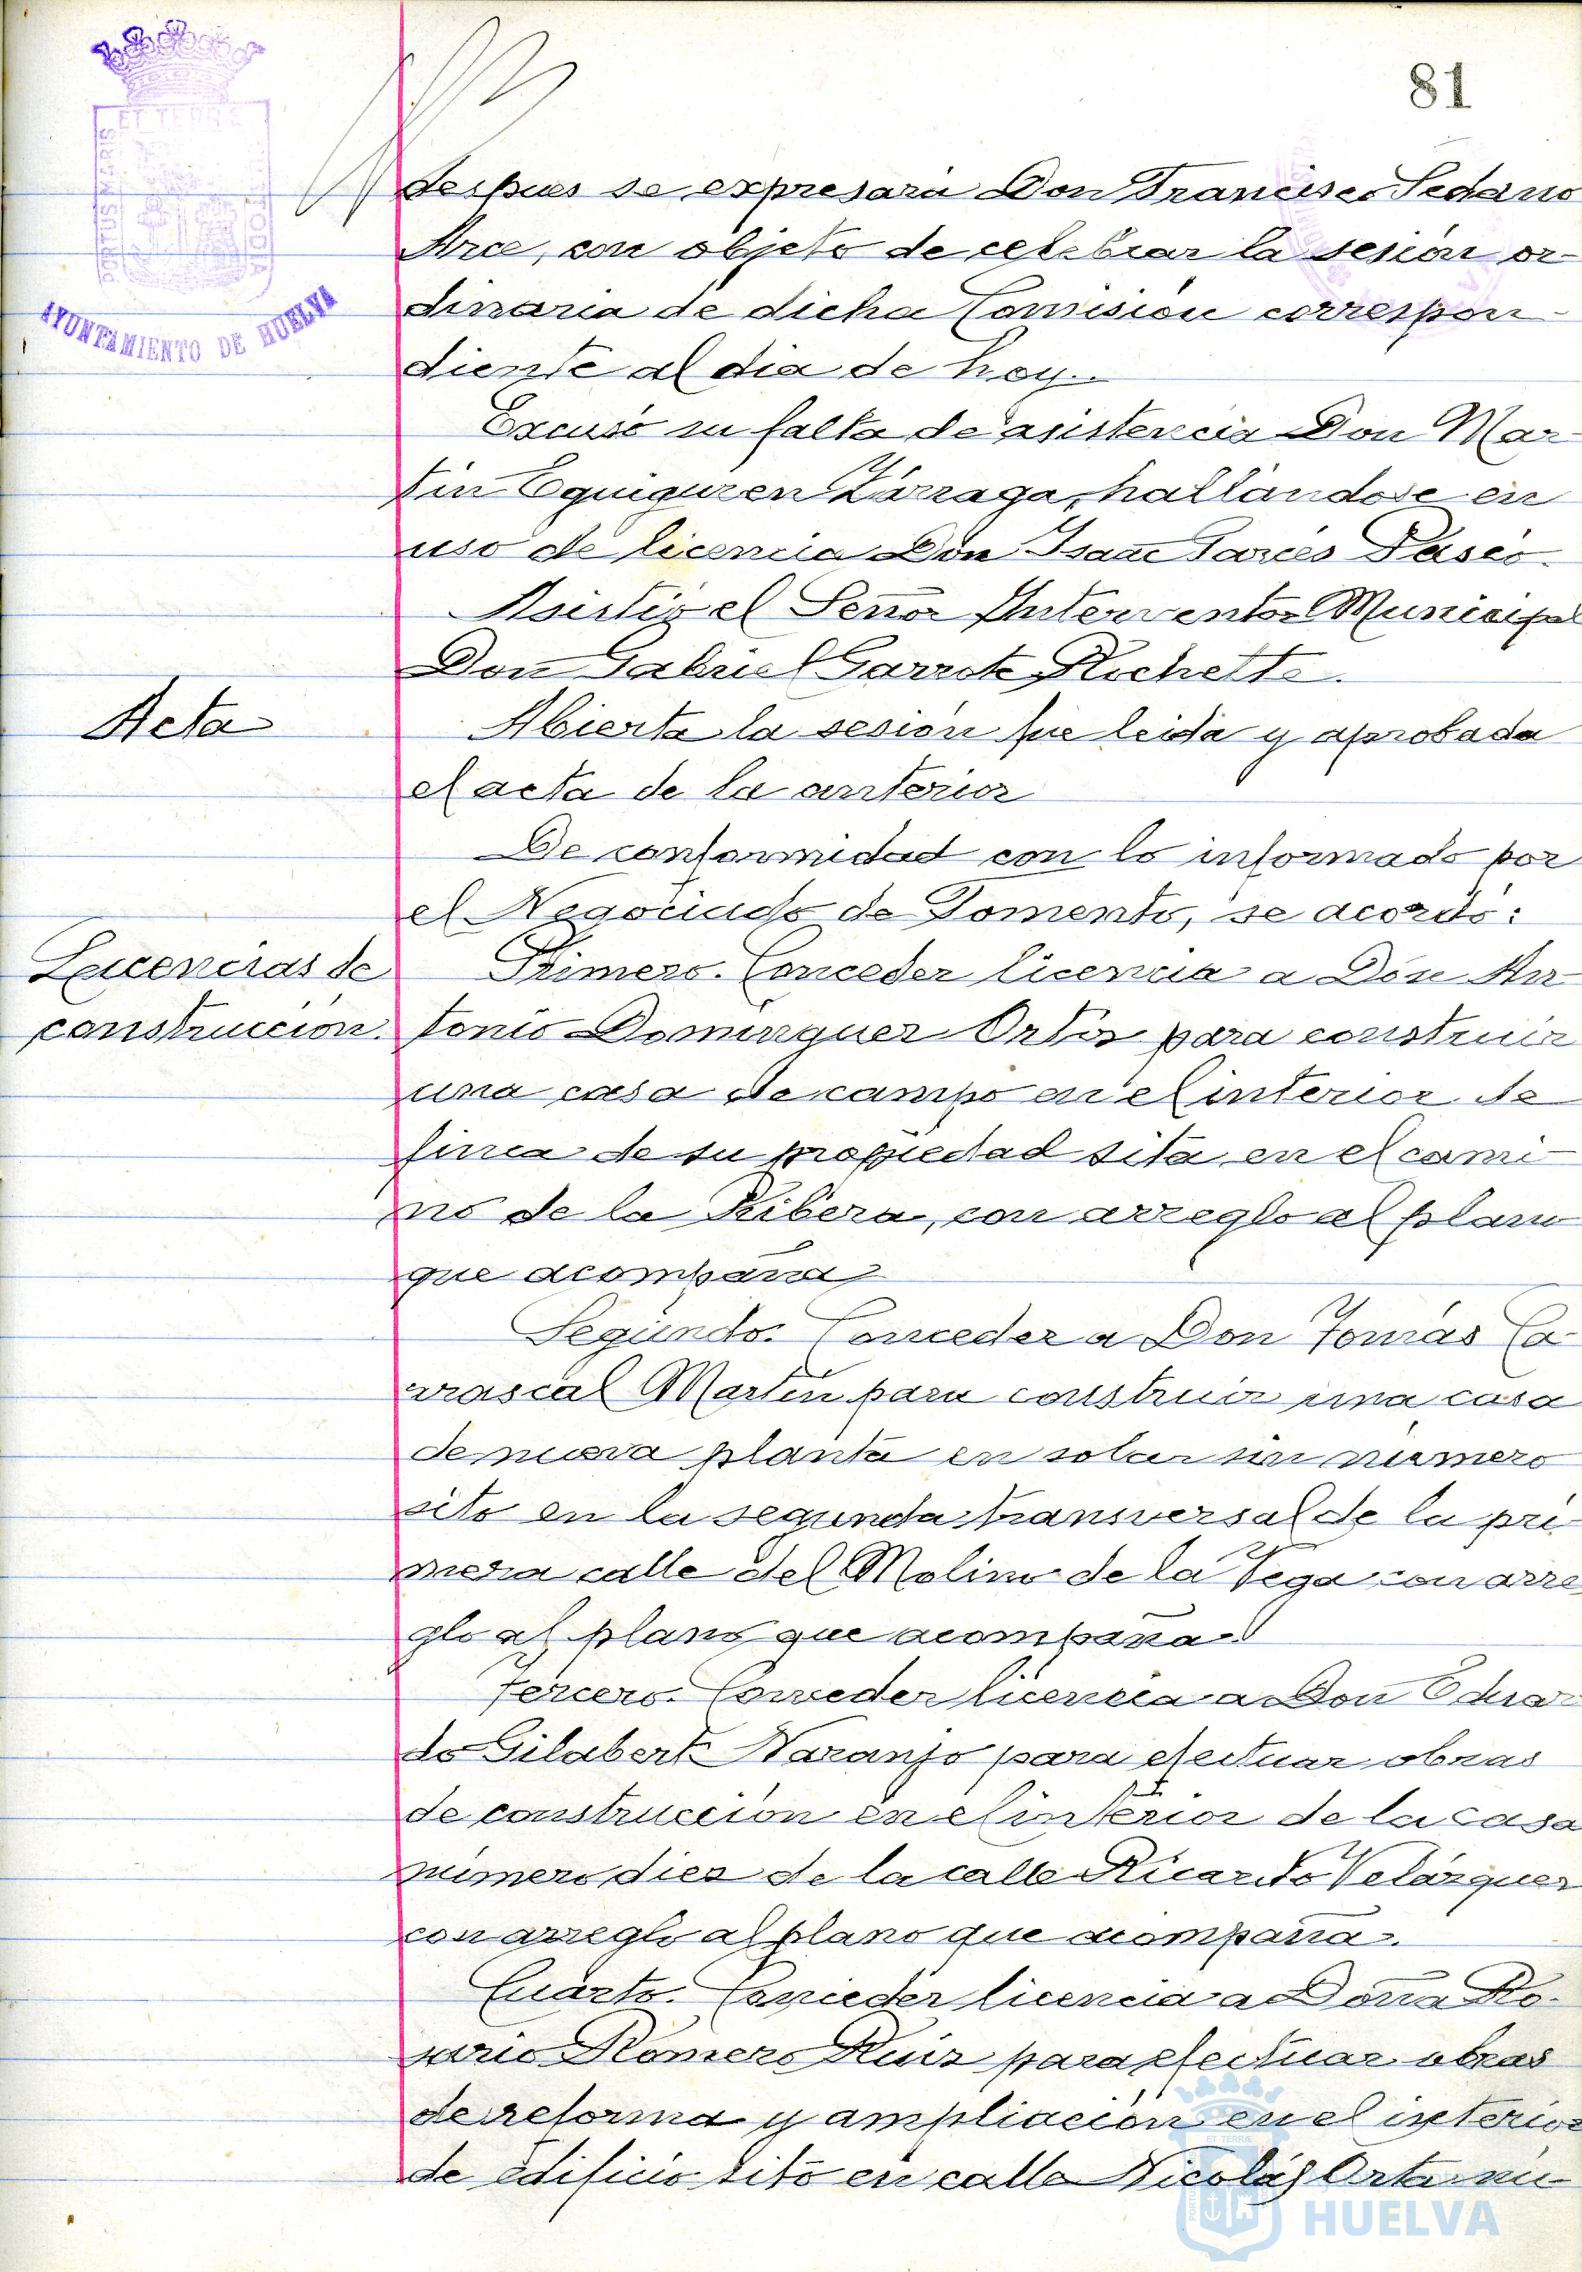 81
ET TERRÆ
PORTUS MARIS
CUSTODIA
AYUNTAMIENTO DE HUELVA
despues se expresara Don Francisco Sedano
Arce, con objeto de celebrar la sesión or-
dinaria de dicha Comisión correspon-
diente al dia de hoy.
Excusó su falta de asistencia Don Mar-
tin Eguiguren Zárraga, hallándose en
uso de licencia Don Isaac Garcés
Asistió el Señor Interventor Municipal
Don Gabriel Garrote Richette.
Acta
Abierta la sesión fue leida y aprobada
el acta de la anterior
De conformidad con lo informado por
el Negociado de Fomento, se acordó:
Licencias de
construcción.
Primero. Conceder licencia a Don An-
tonio Dominguez Ortiz para construir
una casa de campo en el interior de
finca de su propiedad sita en el cami-
no de la Ribera, con arreglo al plano
que acompaña
Segundo. Conceder a Don Tomás Ca-
rrascal Martín para construir una casa
de nueva planta en solar sin número
sito en la segunda transversal de la pri-
mera calle del Molino de la Vega con arre
glo al plano que acompaña.
Tercero. Conceder licencia a Don Eduar-
do Gilabert Naranjo para efectuar obras
de construcción en el interior de la casa
número diez de la calle Ricardo Velázquez
con arreglo al plano que acompaña.
Cuarto. Conceder licencia a Doña Ro-
sario Romero Ruiz para efectuar obras
de reforma y ampliación en el interior
de edificio sito en calle Nicolás Orta nú-
HUELVA